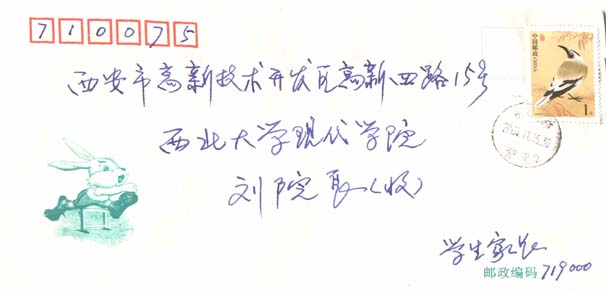 710075
西安市高新技术开发区高新四路15号
西北大学现代学院
刘院长(收)
学生家长
邮政编码 719000
中国邮政
1元